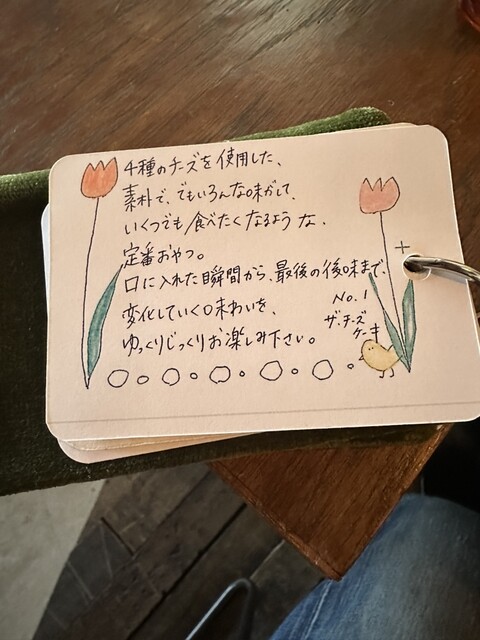 4種のチーズを使用した、
素朴で、でもいろんな味がして、
いくつでも食べたくなるような、
定番おやつ。
口に入れた瞬間から、最後の後味まで、
変化していく味わいを、
ゆっくりじっくりお楽しみ下さい。
No.1
ザ・チーズ
ケーキ